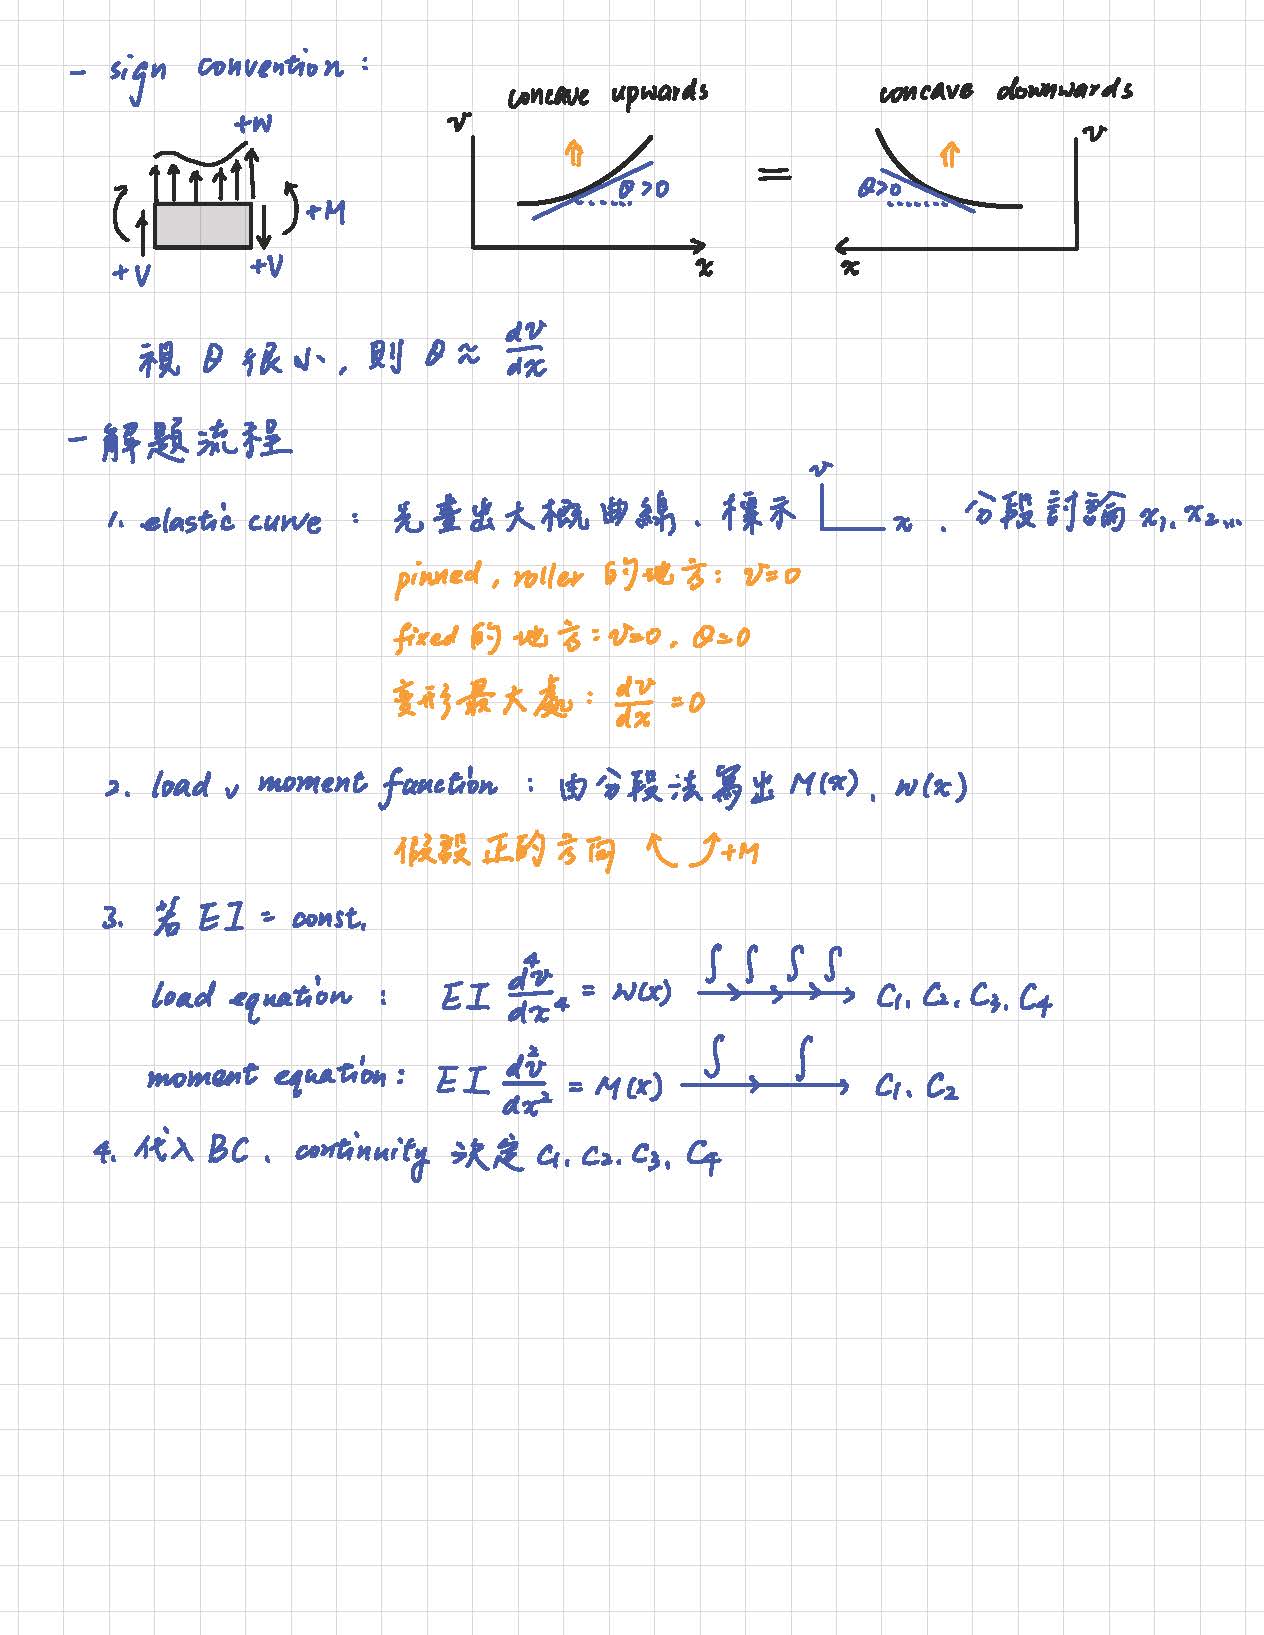 - sign convention:
concave upwards
concave downwards
+w
v
θ>0
=
θ>0
v
+M
+V
+V
x
x
視 θ 很小, 則 θ ≈ dv/dx
- 解題流程
1. elastic curve : 先畫出大概曲線、標示 v x 、分段討論 x₁、x₂...
pinned, roller 的地方: v=0
fixed 的地方: v=0、θ=0
變形最大處: dv/dx = 0
2. load v moment function : 由分段法寫出 M(x)、w(x)
假設正的方向 +M
3. 若 EI = const.
load equation : EI d⁴v/dx⁴ = w(x) ∫ ∫ ∫ ∫ C₁、C₂、C₃、C₄
moment equation: EI d²v/dx² = M(x) ∫ ∫ C₁、C₂
4. 代入 BC、continuity 決定 C₁、C₂、C₃、C₄